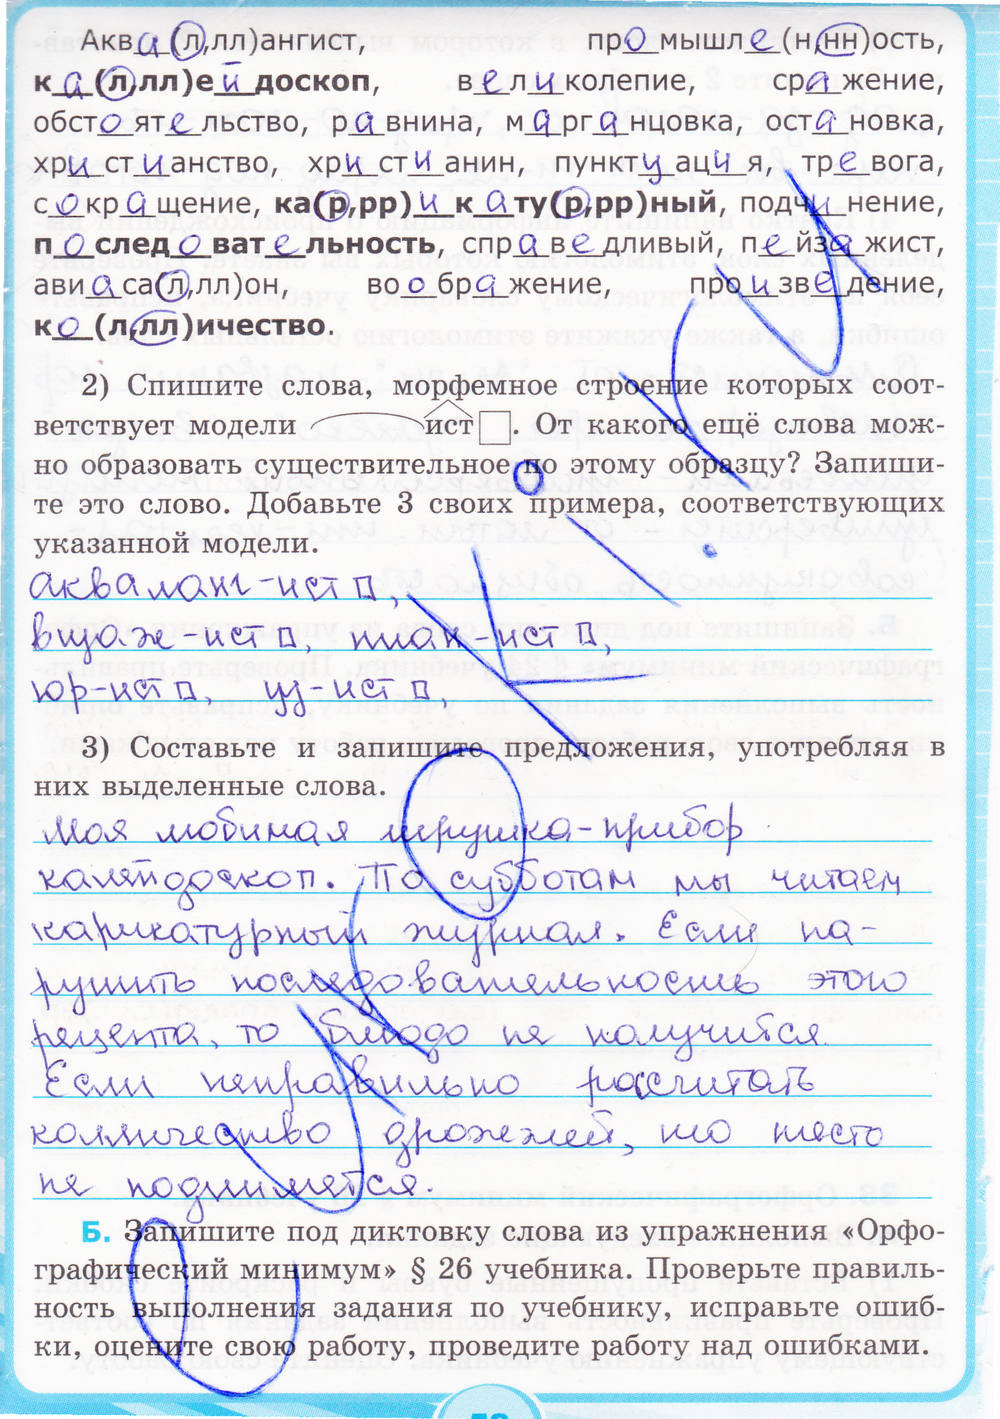 Аква(л,лл)ангист, промышле(н,нн)ость,
ка(л,лл)ейдоскоп, великолепие, сражение,
обстоятельство, равнина, марганцовка, остановка,
христианство, христианин, пунктуация, тревога,
сокращение, ка(р,рр)икату(р,рр)ный, подчинение,
последовательность, справедливый, пейзажист,
авиаса(л,лл)он, воображение, произведение,
ко(л,лл)ичество.
2) Спишите слова, морфемное строение которых соот-
ветствует модели ист. От какого ещё слова мож-
но образовать существительное по этому образцу? Запиши-
те это слово. Добавьте 3 своих примера, соответствующих
указанной модели.
акваланг-ист,
пиан-ист,
юр-ист,
3) Составьте и запишите предложения, употребляя в
них выделенные слова.
Моя любимая игрушка-прибор
калейдоскоп. По субботам мы читаем
карикатурный журнал. Если на-
рушить последовательность этого
рецепта, то блюдо не получится.
Если неправильно расчитать
колличество дрожжей, то тесто
не поднимется.
Б. Запишите под диктовку слова из упражнения «Орфо-
графический минимум» § 26 учебника. Проверьте правиль-
ность выполнения задания по учебнику, исправьте ошиб-
ки, оцените свою работу, проведите работу над ошибками.